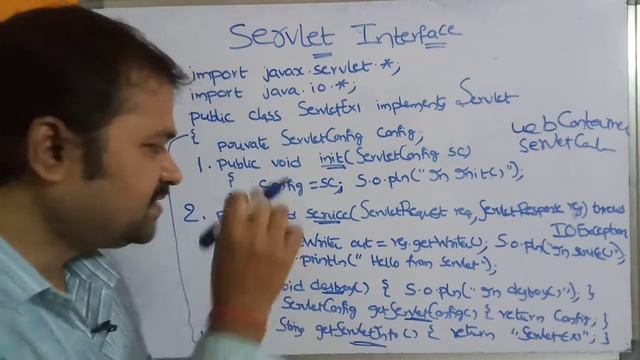 Servlet Interface
import javax.servlet.*;
import java.io.*;
public class ServletEx1 implements Servlet
{ private ServletConfig Config;
1. public void init(ServletConfig sc)
{ config = sc; S.o.pln("In Init()");
2. service(ServletRequest req, ServletResponse res) throws
IOException
Write out = res.getWrite(); S.o.pln("In service()");
.println("Hello from servlet");
void destroy() { S.o.pln("In destroy()"); }
ServletConfig getServletConfig() { return Config; }
String getServletInfo() { return "ServletEx1"; }
web Container